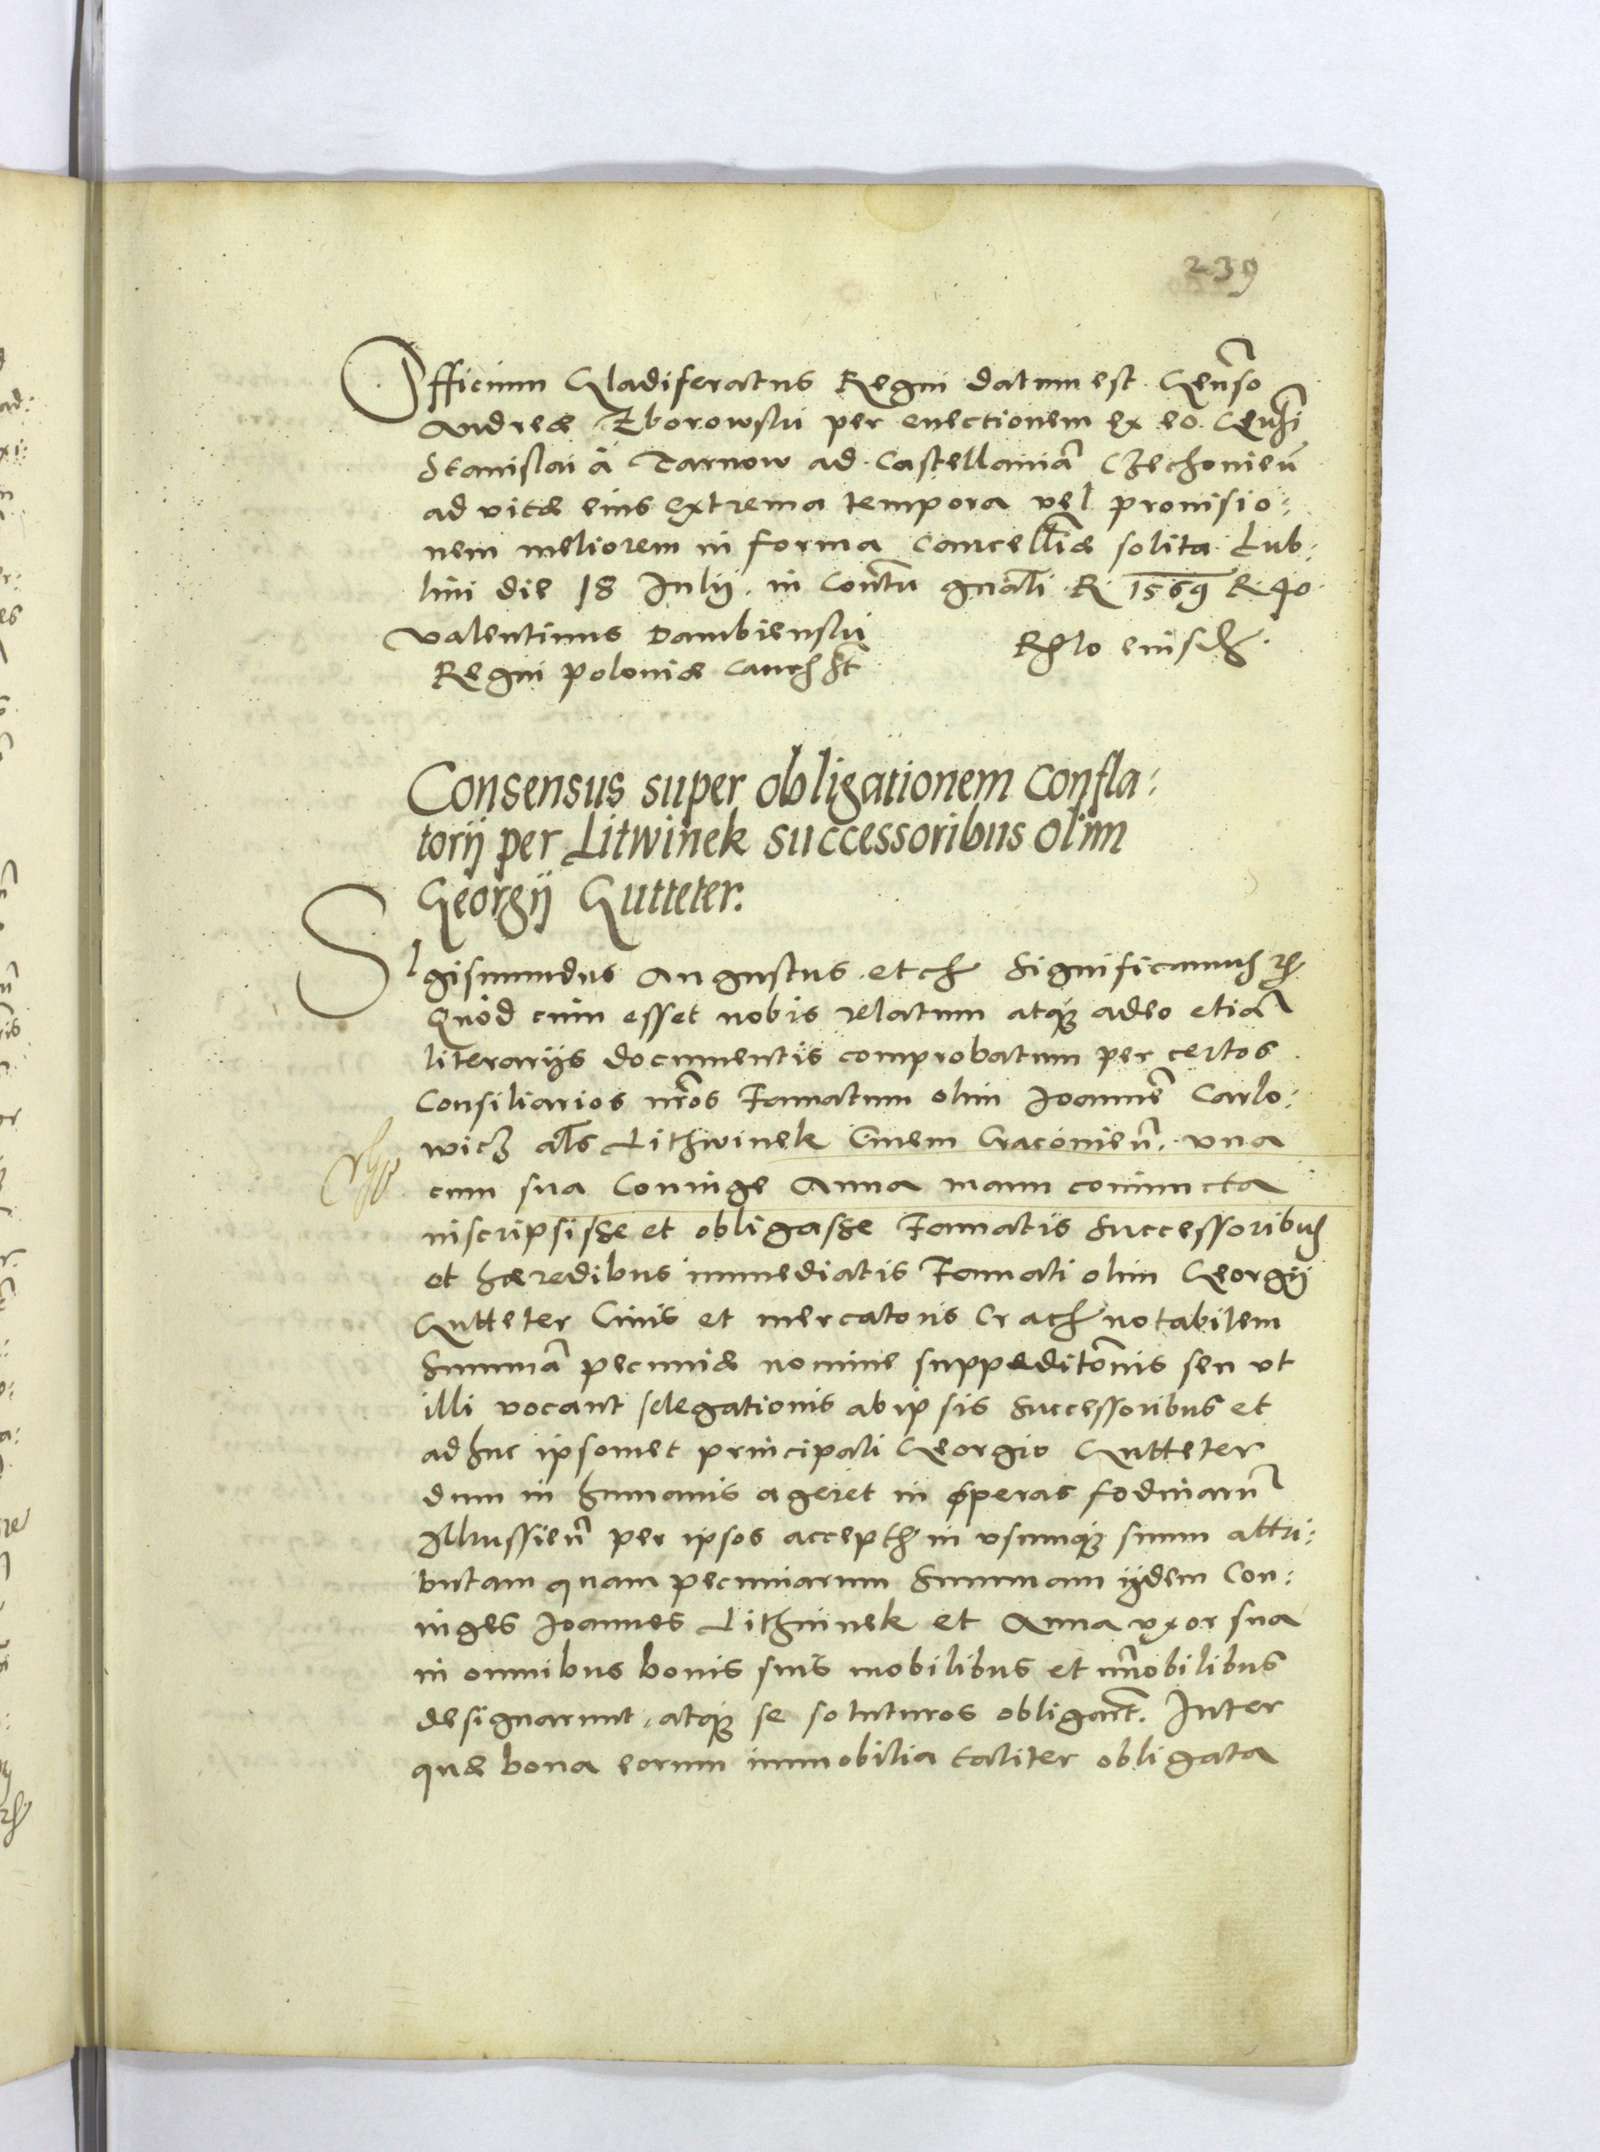 239
Officium Gladiferatus Regni datum est Genrso
Andreæ Zborowski per euectionem ex eo Genrsi
Stanislai à Tarnow ad Castellaniam Czechouien
ad vitæ eius extrema tempora vel prouisio:
nem meliorem in forma cancellriæ solita Lub:
lini die 18 Iulij in Conuentu gnali R 1569 R 40
Valentinus Dambienski Rlo eiusd
Regni Poloniæ Canc st
Consensus super obligationem Confla:
torij per Litwinek successoribus olim
Georgij Gutteter.
Sigismundus Augustus etc Significamus etc
Quod cum esset nobis relatum atque adeo etiam
literarijs documentis comprobatum per certos
Consiliarios nros Famatum olim Joannem Carlo:
wicz als Lithwinek Ciuem Cracouien. vna
cum sua Coniuge Anna manu coniuncta
inscripsisse et obligasse Famatis Successoribus
et hæredibus immediatis Famati olim Georgij
Gutteter Ciuis et mercatoris Crac notabilem
Summam pecuniæ nomine suppeditonis seu vt
illi vocant selegationis ab ipsis Successoribus et
adhuc ipsomet principali Georgio Gutteter
dum in humanis ageret in operas fodinarum
Ilkussien per ipsos accept in vsumque suum attri:
butam quam pecuniarum Summam ijdem Con:
iuges Joannes Lithuinek et Anna vxor sua
in omnibus bonis suis mobilibus et immobilibus
designarunt, atque se soluturos obligarunt. Inter
quæ bona eorum immobilia taliter obligata